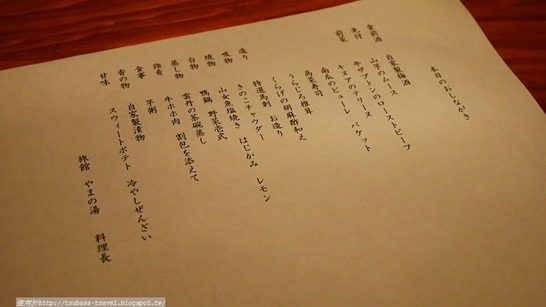 本日のおしながき
食前酒　自家製梅酒
先付　山芋のムース
前菜　牛ザブトンのローストビーフ
キヌアのテリーヌ　バゲット
南瓜のピューレ
高菜寿司
うらじろ椎茸
くらげの胡麻酢和え
造り　特選馬刺　お造り
吸物　きのこチャウダー
焼物　山女魚塩焼き　はじかみ　レモン
台物　鴨鍋　野菜壱式
蒸し物　雲丹の茶碗蒸し
強肴　牛ホホ肉　割包を添えて
食事　芋粥
香の物　自家製漬物
甘味　スウィートポテト　冷やしぜんざい
旅館　やまの湯　料理長
http://tsubasa-travel.blogspot.tw/